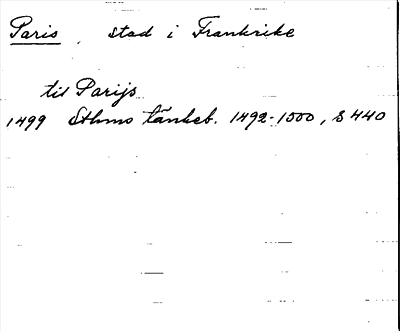 Paris, stad i Frankrike
til Parijs
1499 Sthms tänkeb. 1492-1500, s 440